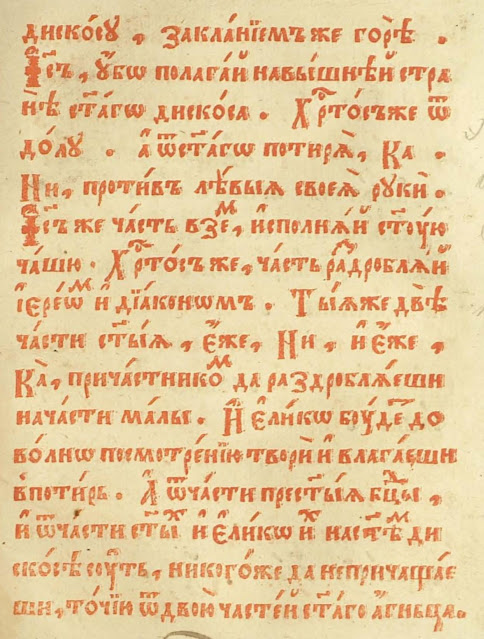 ди́скосу , закла́нїемъ же горѣ̀ .
І҆с҃ъ , ᲂу҆́бѡ полага́й на вы́шнѣй стра
нѣ̀ ст҃а́гѡ ди́скоса . Хрⷭ҇то́съ же ѿ
до́лу . а҆ ѿ ст҃а́гѡ потирѧ̀ , Ка .
Ни , проти́въ лѣ́выѧ своеѧ̀ рꙋкѝ .
І҆с҃ъ же ча́сть взеⷨ , и҆сполнѧ́й ст҃ꙋ́ю
ча́шꙋ . Хрⷭ҇то́съ же , ча́сть раздроблѧ́й
і҆ере́ѡⷨ и҆ дїа́конѡмъ . Ты́ѧ же двѣ̀
ча́сти ст҃ы́ѧ , є҆́же , Ни , и҆ є҆́же ,
Ка̀ , прича́стникоⷨ да раздроблѧ́еши
на ча́сти ма́лы . И҆ є҆ли́кѡ бꙋ́детъ до
во́лнѡ посмотре́нїю твори̑ и҆ влага́еши
в поти́рь . А҆ ѿ ча́сти прест҃ы́ѧ бц҃ы ,
и҆ ѿ ча́сти ст҃ыⷯ и҆ є҆ли́кѡ и҆ⷯ на ст҃ѣⷨ ди
скосѣ сꙋ́ть , никого́же да не причаща́е
ши , то́чїю ѿ двою̀ часте́й ст҃а́го а҆́гньца .